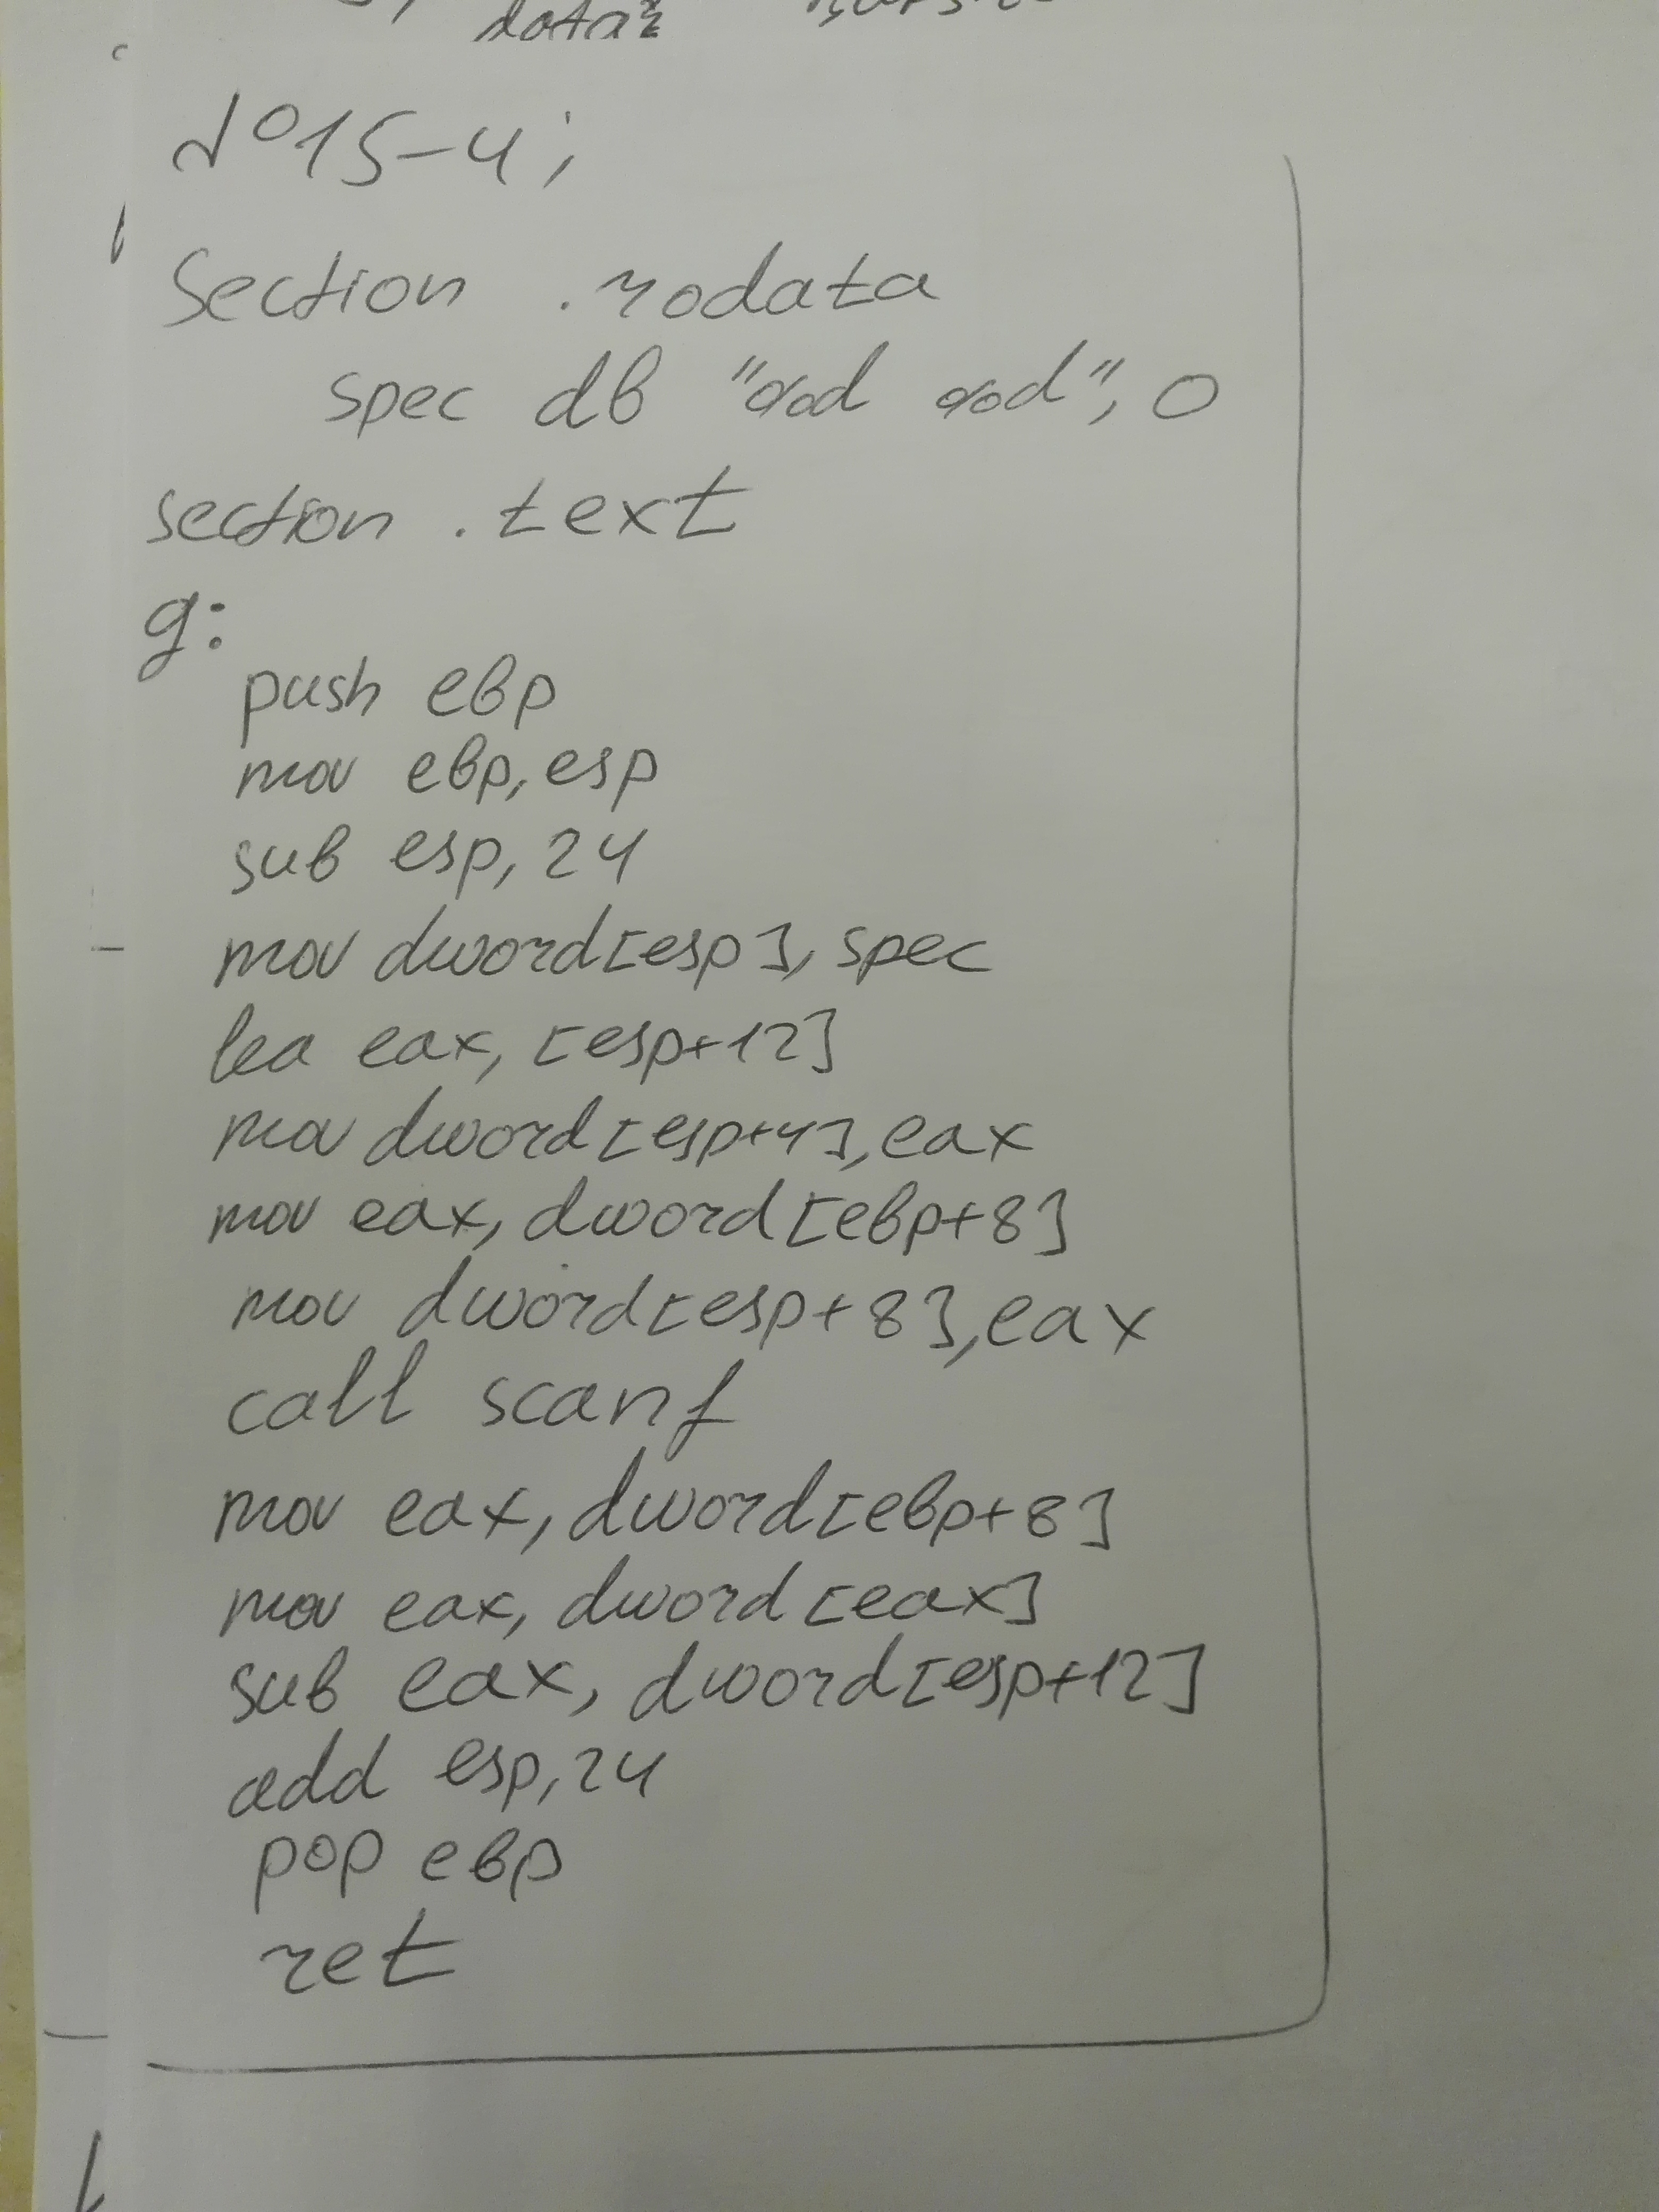 data
№15-4;
Section .rodata
spec db "%d %d", 0
section .text
g:
push ebp
mov ebp, esp
sub esp, 24
mov dword[esp], spec
lea eax, [esp+12]
mov dword[esp+4], eax
mov eax, dword[ebp+8]
mov dword[esp+8], eax
call scanf
mov eax, dword[ebp+8]
mov eax, dword[eax]
sub eax, dword[esp+12]
add esp, 24
pop ebp
ret